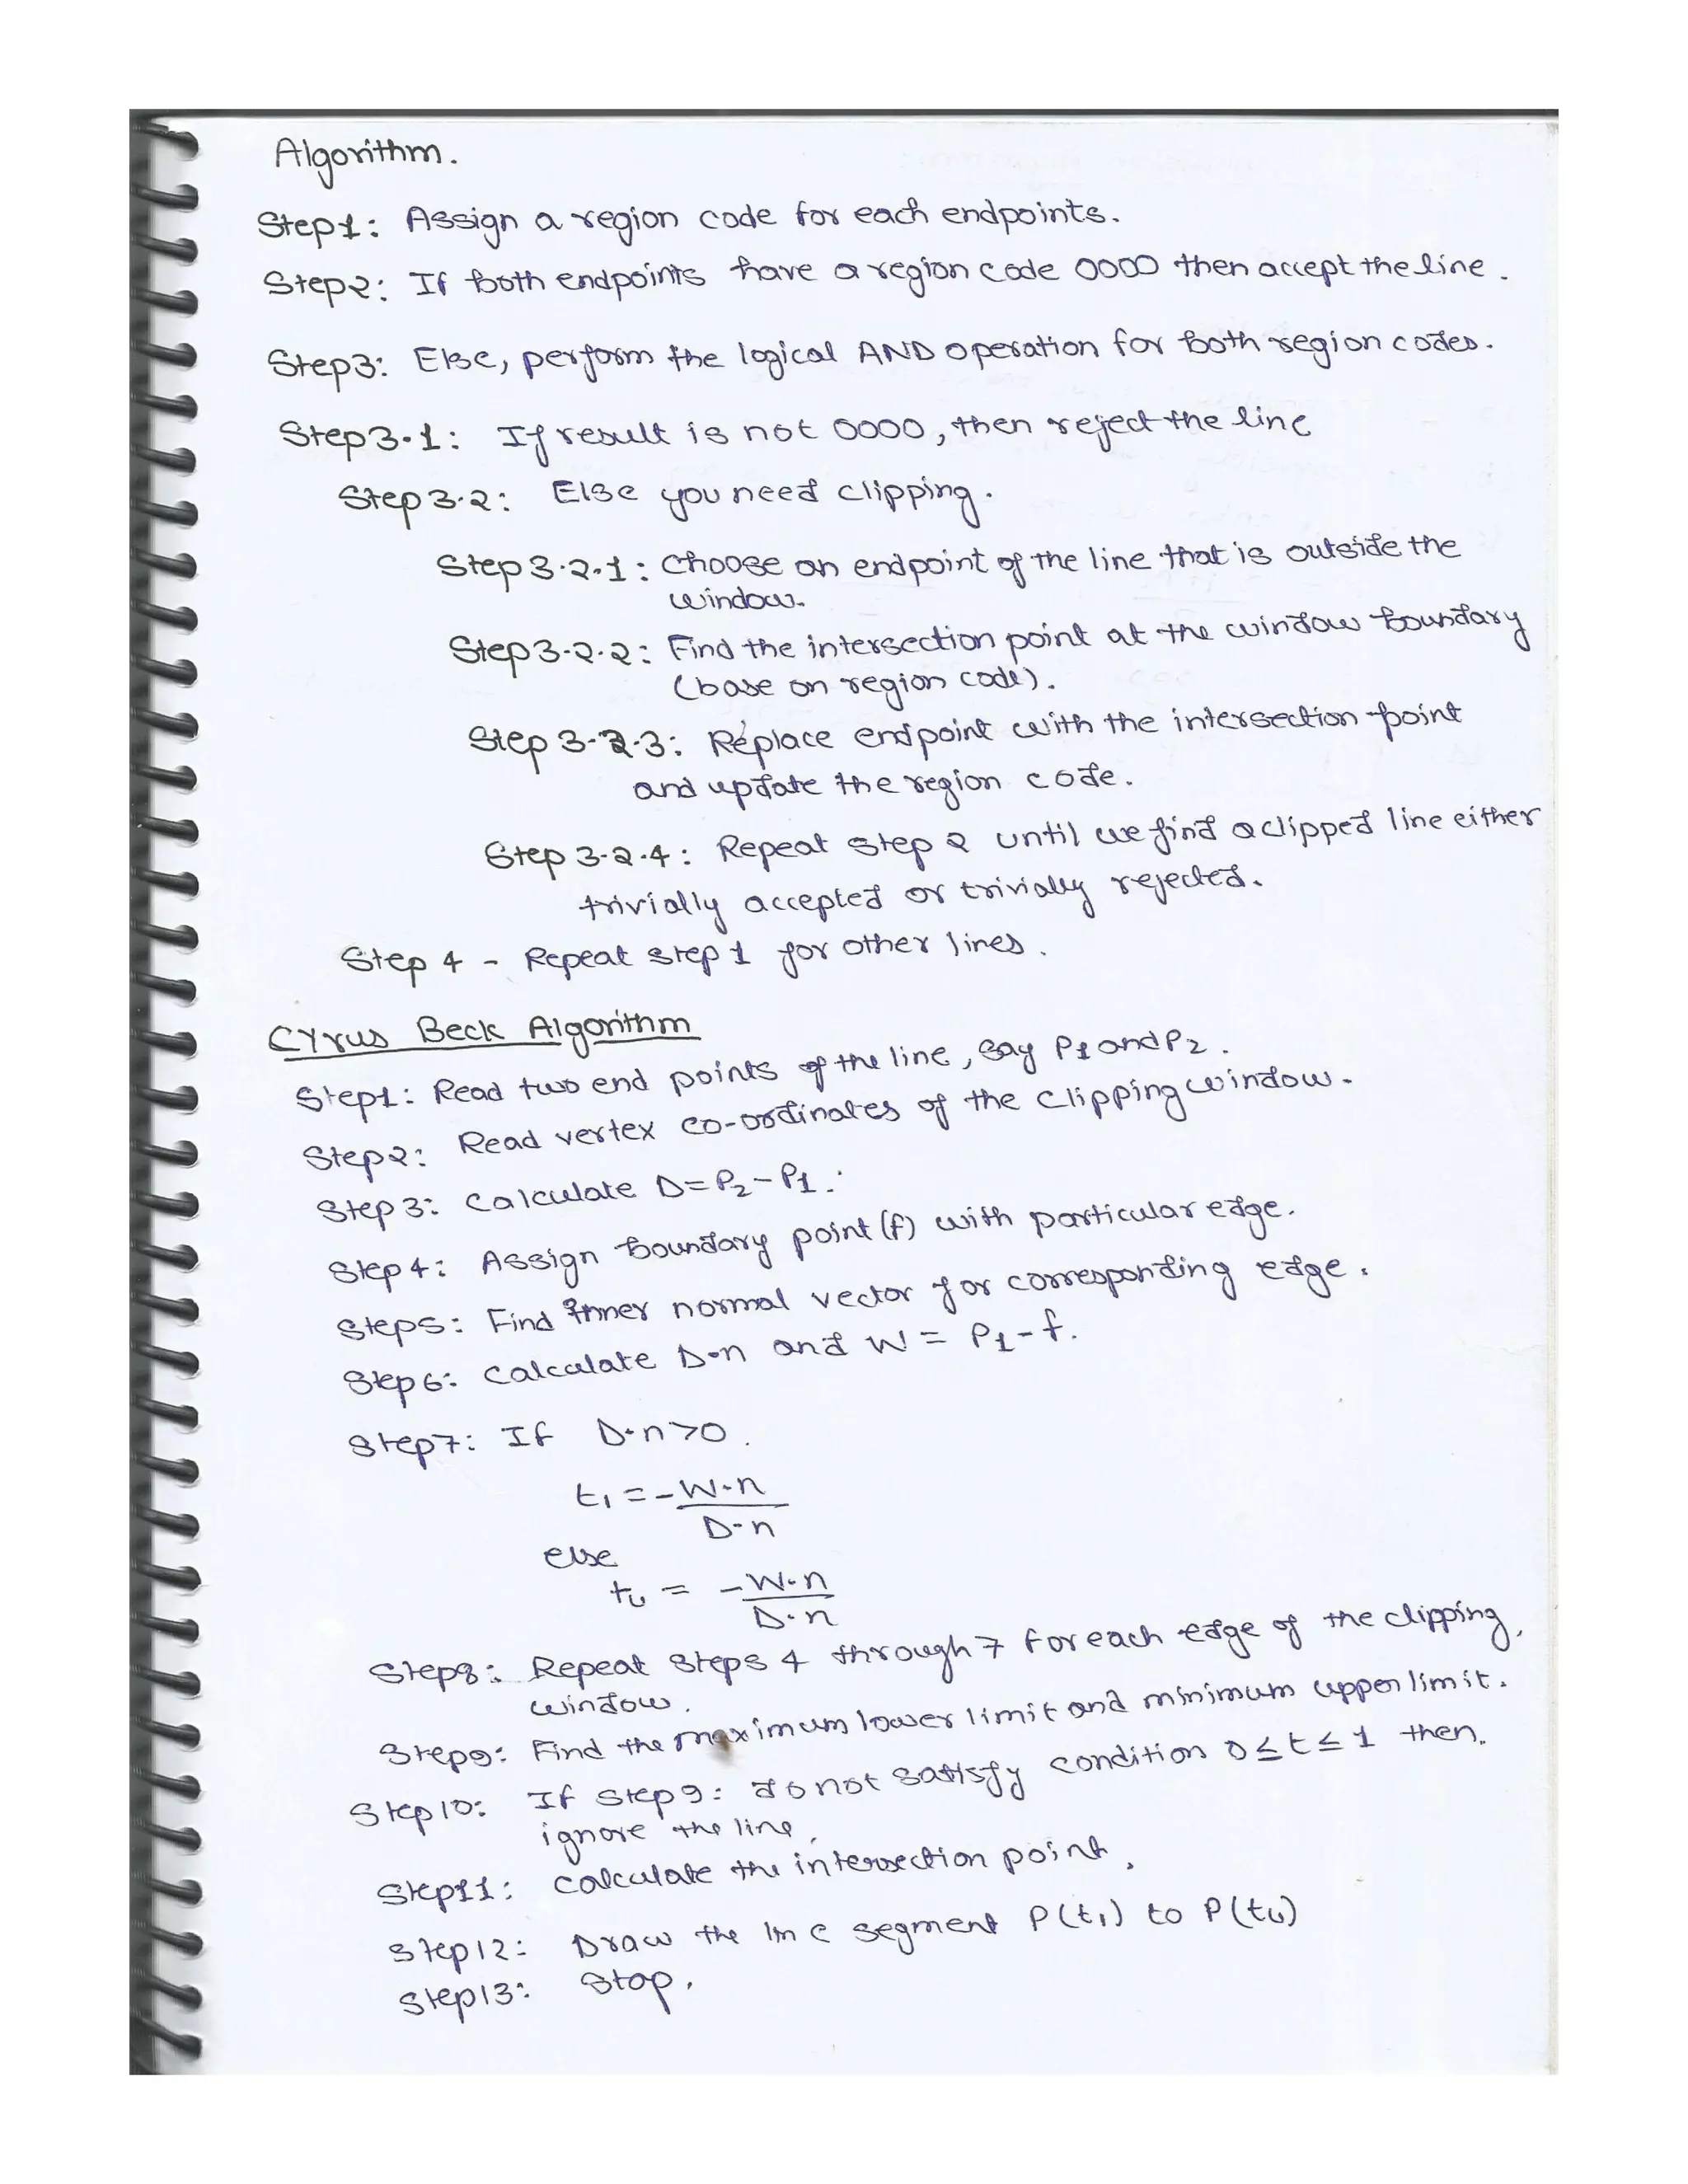 Algorithm.
Step1: Assign a region code for each endpoints.
Step2: If both endpoints have a region code 0000 then accept the line.
Step3: Else, perform the logical AND operation for both region codes.
Step3.1: If result is not 0000, then reject the line
Step 3.2: Else you need clipping.
Step 3.2.1: Choose an endpoint of the line that is outside the
window.
Step3.2.2: Find the intersection point at the window boundary
(base on region code).
Step 3.2.3: Replace endpoint with the intersection point
and update the region code.
Step 3.2.4: Repeat step 2 until we find a clipped line either
trivially accepted or trivially rejected.
Step 4 - Repeat step 1 for other lines.
Cyrus Beck Algorithm
Step1: Read two end points of the line, say P1 and P2.
Step2: Read vertex co-ordinates of the clipping window.
Step 3: Calculate D=P2-P1.
Step 4: Assign boundary point (f) with particular edge.
Step5: Find inner normal vector for corresponding edge.
Step 6: Calculate D.n and W = P1-f.
Step7: If D.n>0.
t1 = -W.n
D.n
else
tu = -W.n
D.n
Step8: Repeat steps 4 through 7 for each edge of the clipping
window.
Step9: Find the maximum lower limit and minimum upper limit.
Step10: If step 9: do not satisfy condition 0≤t≤1 then.
ignore the line.
Step11: Calculate the intersection point.
Step12: Draw the line segment P(t1) to P(tu)
Step13: Stop.